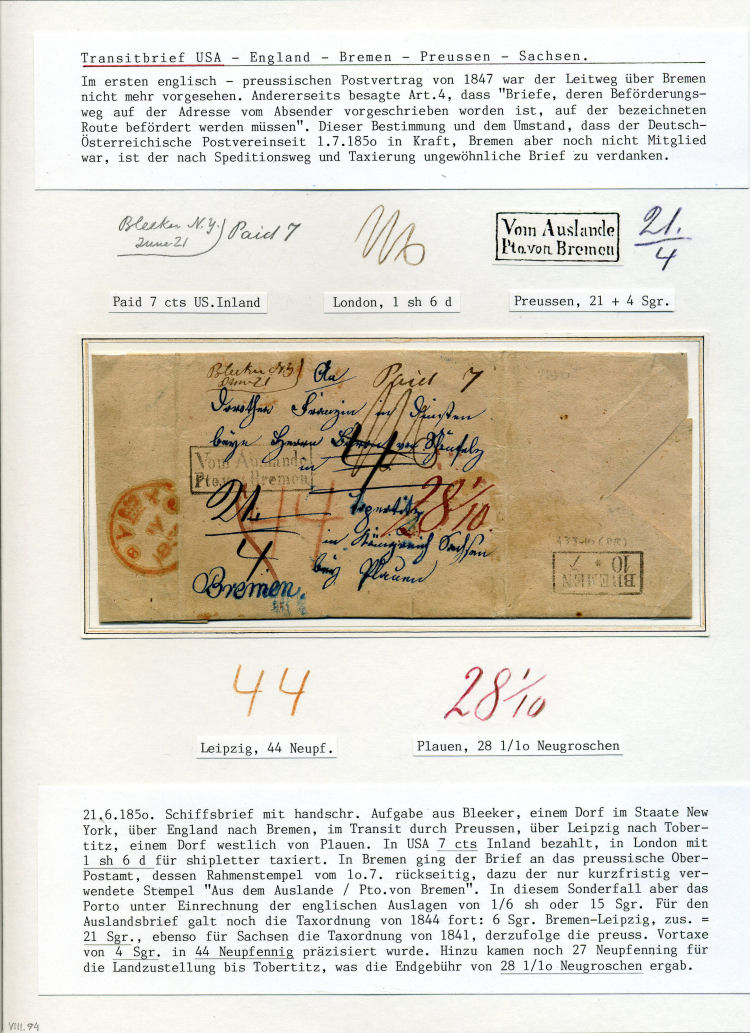 Transitbrief USA - England - Bremen - Preussen - Sachsen.
Im ersten englisch - preussischen Postvertrag von 1847 war der Leitweg über Bremen
nicht mehr vorgesehen. Andererseits besagte Art.4, dass "Briefe, deren Beförderungs-
weg auf der Adresse vom Absender vorgeschrieben worden ist, auf der bezeichneten
Route befördert werden müssen". Dieser Bestimmung und dem Umstand, dass der Deutsch-
Österreichische Postvereinseit 1.7.185o in Kraft, Bremen aber noch nicht Mitglied
war, ist der nach Speditionsweg und Taxierung ungewöhnliche Brief zu verdanken.
Bleeker N.Y.
June 21
Paid 7
Vom Auslande
Pto.von Bremen
21.
4
Paid 7 cts US.Inland
London, 1 sh 6 d
Preussen, 21 + 4 Sgr.
Bleeker N.Y.
June 21
An
Paid 7
in
bey Herrn
von
4
Vom Auslande
Pto. Bremen
in
44
28 1/10
21
4
in Königreich Sachsen
bey Plauen
Bremen
A33-10 (PR)
BREMEN
10 * 7
44
28 1/10
Leipzig, 44 Neupf.
Plauen, 28 1/1o Neugroschen
21.6.185o. Schiffsbrief mit handschr. Aufgabe aus Bleeker, einem Dorf im Staate New
York, über England nach Bremen, im Transit durch Preussen, über Leipzig nach Tober-
titz, einem Dorf westlich von Plauen. In USA 7 cts Inland bezahlt, in London mit
1 sh 6 d für shipletter taxiert. In Bremen ging der Brief an das preussische Ober-
Postamt, dessen Rahmenstempel vom 1o.7. rückseitig, dazu der nur kurzfristig ver-
wendete Stempel "Aus dem Auslande / Pto.von Bremen". In diesem Sonderfall aber das
Porto unter Einrechnung der englischen Auslagen von 1/6 sh oder 15 Sgr. Für den
Auslandsbrief galt noch die Taxordnung von 1844 fort: 6 Sgr. Bremen-Leipzig, zus. =
21 Sgr., ebenso für Sachsen die Taxordnung von 1841, derzufolge die preuss. Vortaxe
von 4 Sgr. in 44 Neupfennig präzisiert wurde. Hinzu kamen noch 27 Neupfenning für
die Landzustellung bis Tobertitz, was die Endgebühr von 28 1/1o Neugroschen ergab.
VIII.94